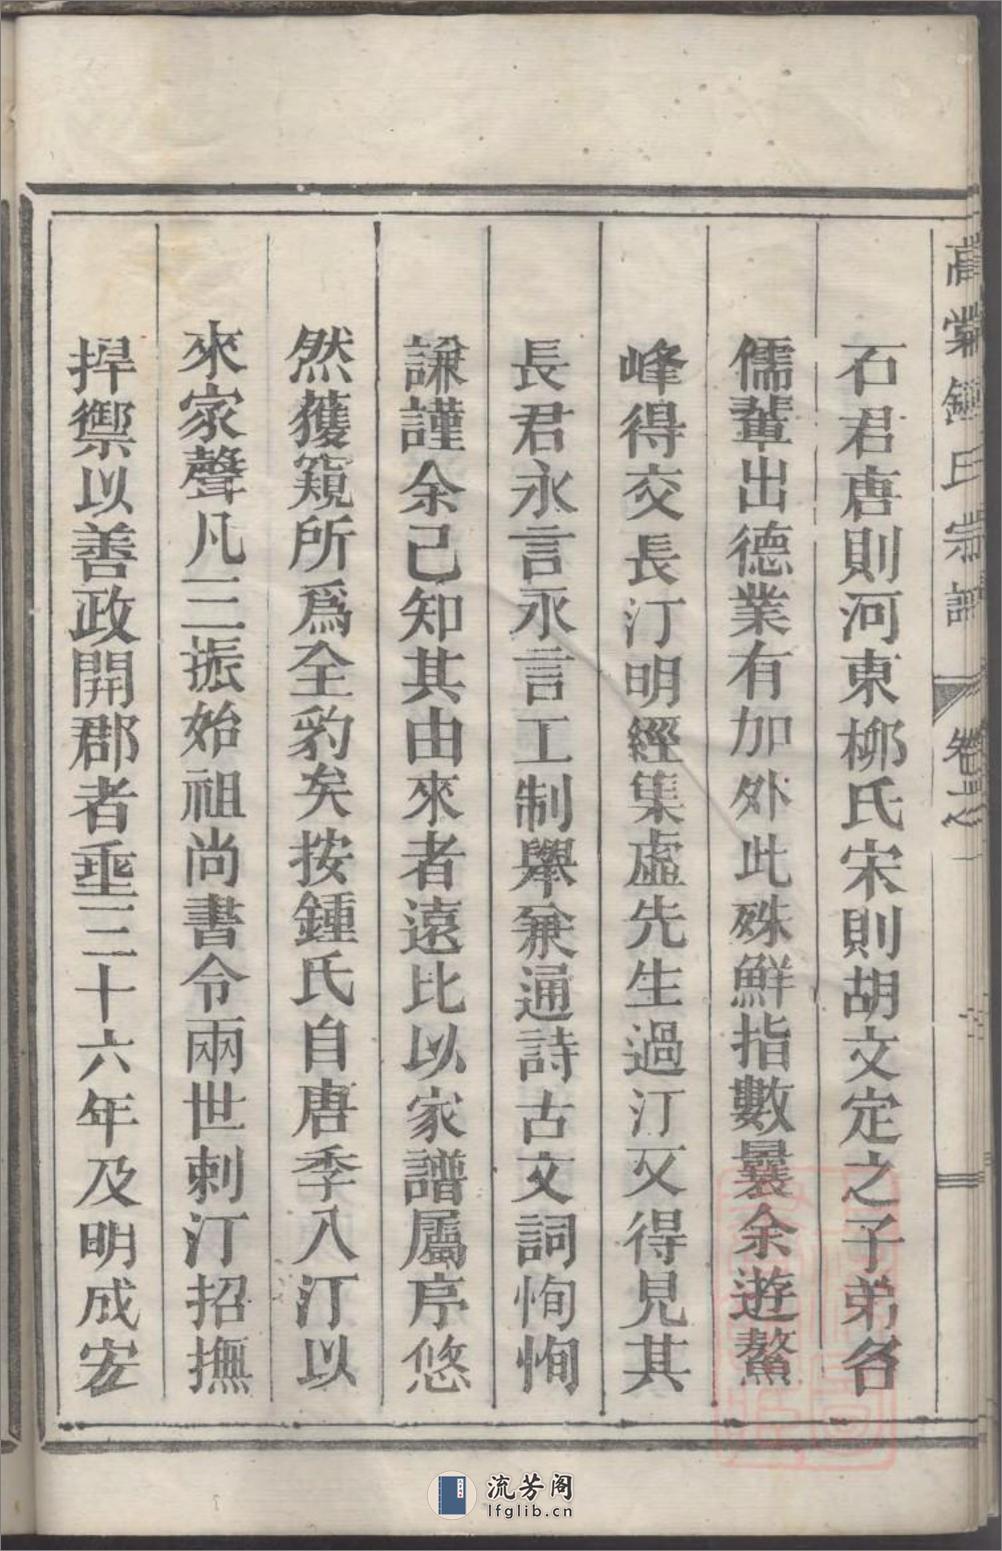 石君唐則河東柳氏宋則胡文定之子弟名
儒輩出德業有加外此殊鮮指數曩余遊鰲
峰得交長汀明經集虛先生過汀又得見其
長君永言永言工制舉兼通詩古文詞恂恂
謙謹余已知其由來者遠比以家譜屬序悠
然獲窺所爲全豹矣按鍾氏自唐季入汀以
來家聲凡三振始祖尚書令兩世刺汀招撫
捍禦以善政開郡者垂三十六年及明成宏
鍾氏宗譜
卷之一
流芳阁
lfglib.cn